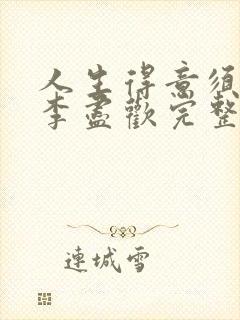 人生得意须
李盡歡完整
連城雪